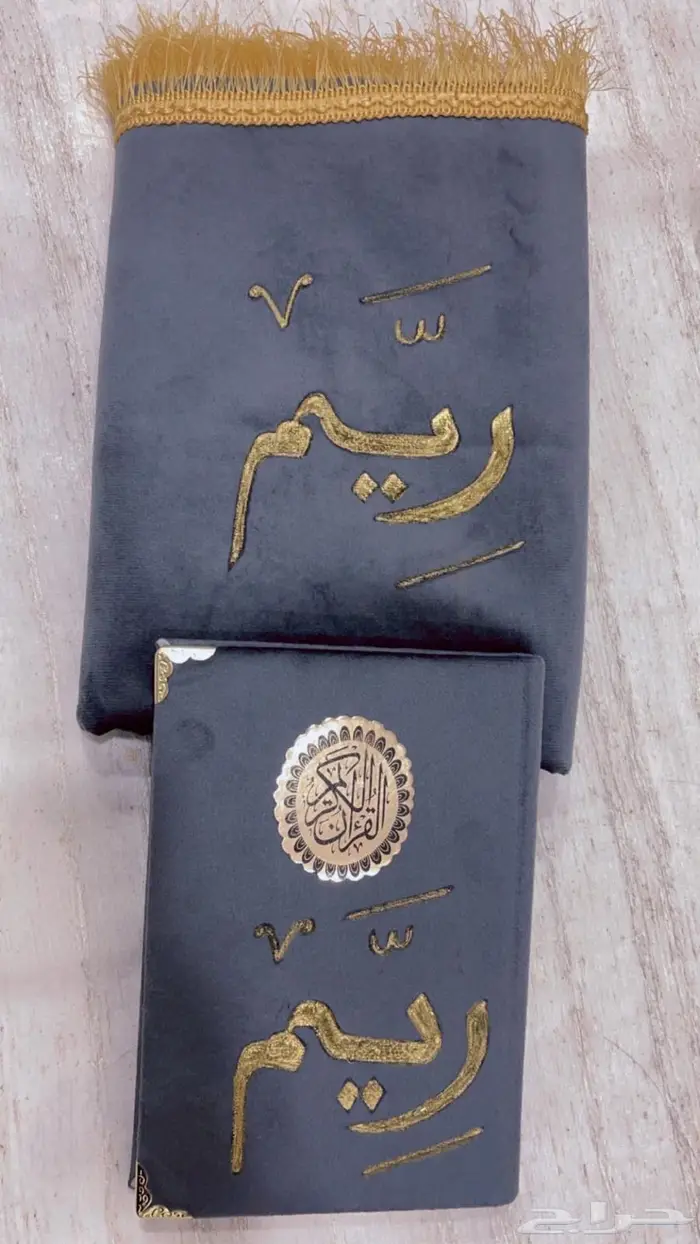 ريم
القرآن الكريم
ريم
حراج